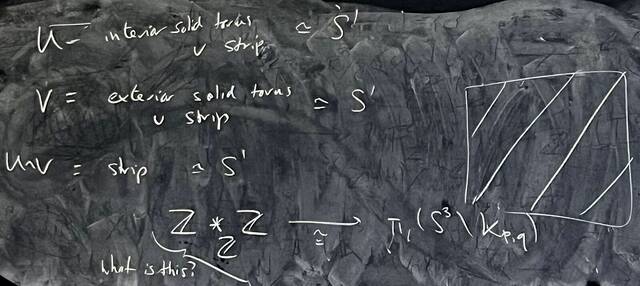 U = interior solid torus ∪ strip ≃ S¹
V = exterior solid torus ∪ strip ≃ S¹
U∩V = strip ≃ S¹
ℤ *_ℤ ℤ ⟶≅ π₁(S³\K_{p,q})
What is this?